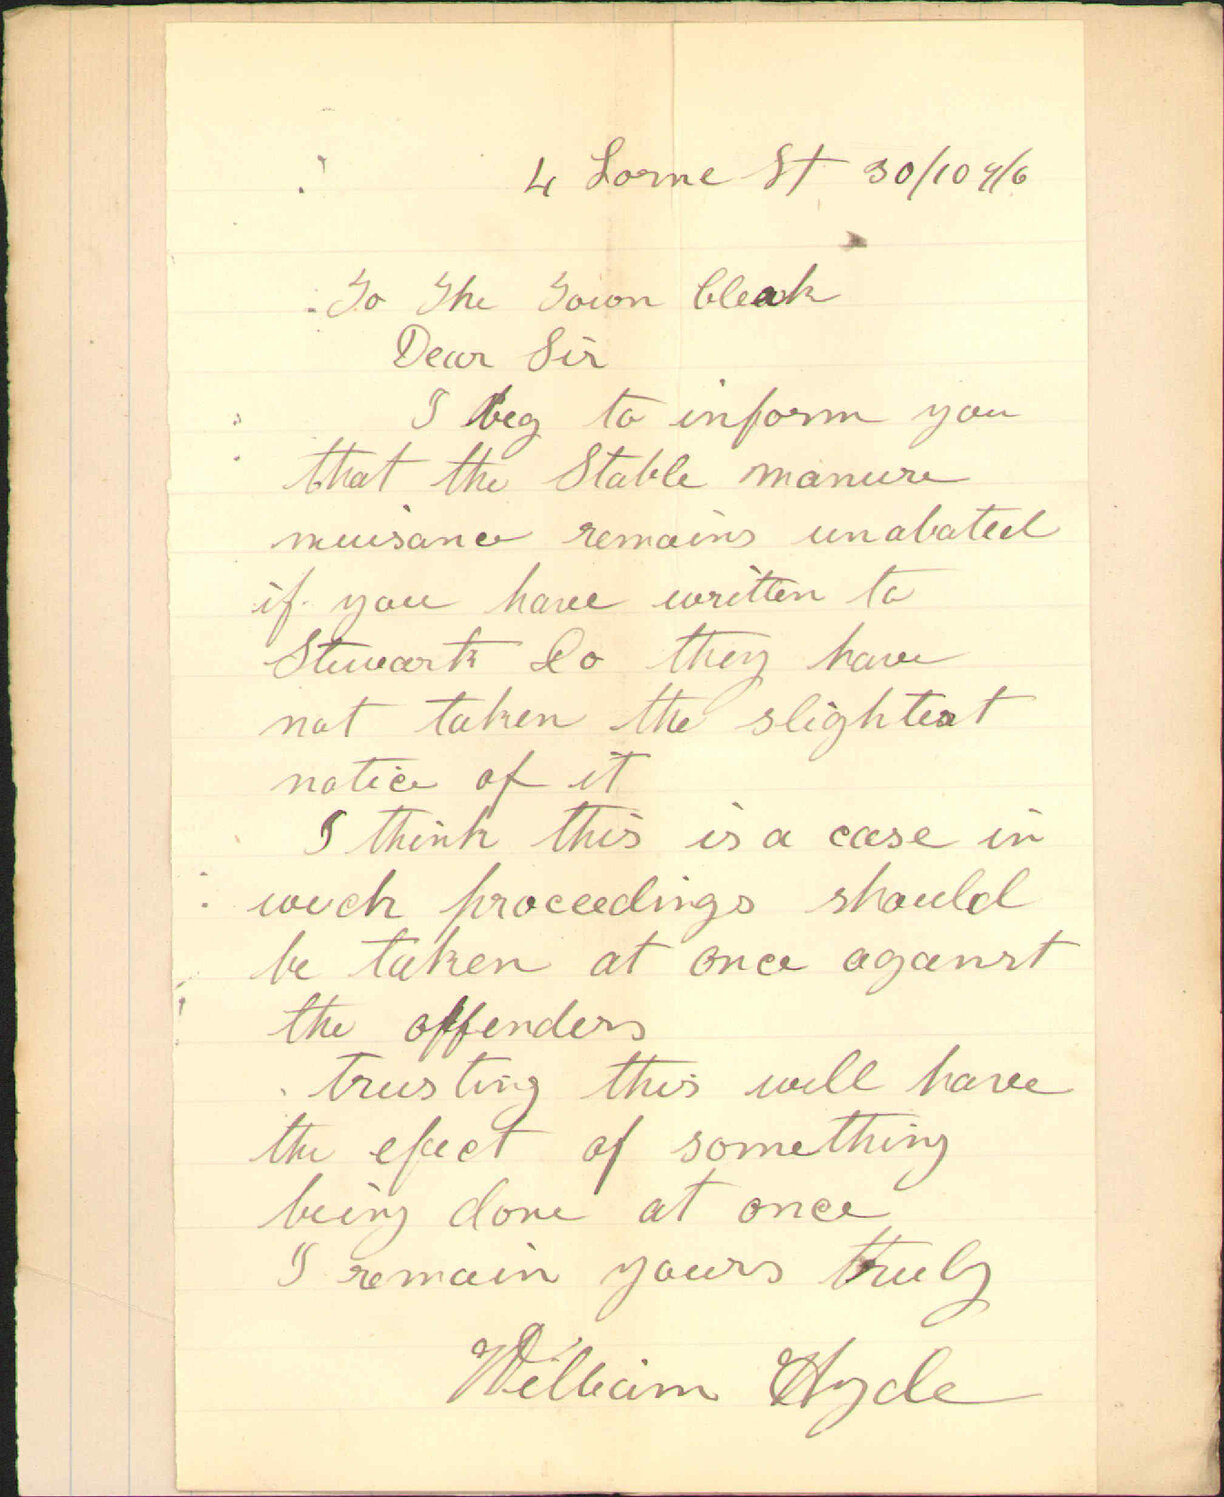 4 Lorne St 30/10 96
To The Town Cleark
Dear Sir
I beg to inform you
that the Stable manure
nuisance remains unabated
if you have written to
Stewart Co they have
not taken the slightest
notice of it
I think this is a case in
wich proceedings should
be taken at once against
the offenders
trusting this will have
the efect of something
being done at once
I remain yours truly
William Hyde